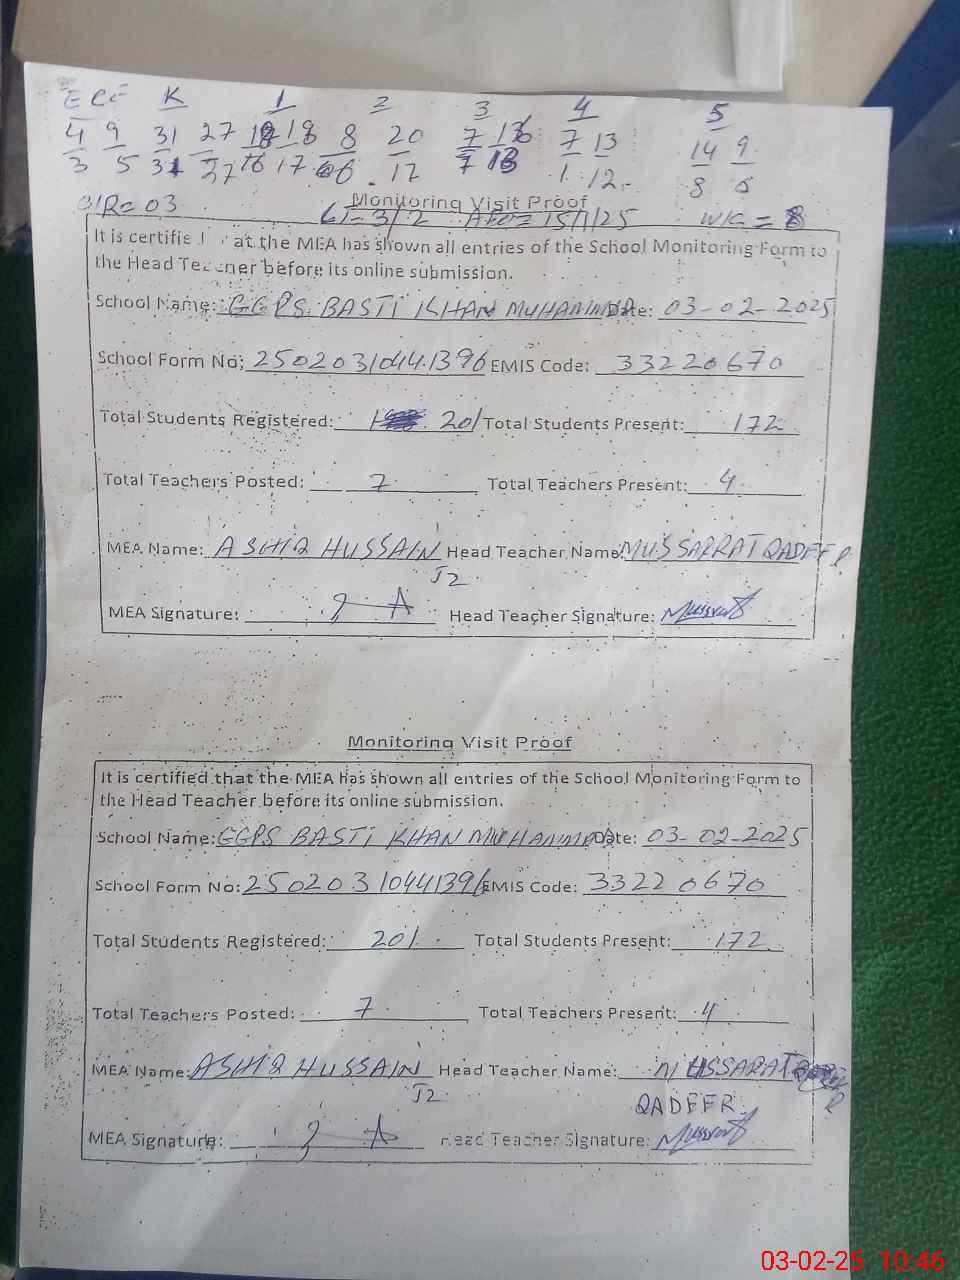 ECE K 1 2 3 4 5
4 9 31 27 18 18 8 20 7 13 7 13 14 9
3 5 31 27 16 17 6 17 7 13 1 12 8 6
Monitoring Visit Proof
15/1/25
It is certified at the MEA has shown all entries of the School Monitoring Form to
the Head Teacher before its online submission.
School Name: GGPS BASTI KHAN MUHAMMAD Date: 03-02-2025
School Form No: 25020310441396 EMIS Code: 33220670
Total Students Registered: 201 Total Students Present: 172
Total Teachers Posted: 7 Total Teachers Present: 4
MEA Name: ASHIQ HUSSAIN Head Teacher Name: MUSSARRAT QADEER
J2
MEA Signature: Head Teacher Signature: Mussrat
Monitoring Visit Proof
It is certified that the MEA has shown all entries of the School Monitoring Form to
the Head Teacher before its online submission.
School Name: GGPS BASTI KHAN MUHAMMAD Date: 03-02-2025
School Form No: 25020310441396 EMIS Code: 33220670
Total Students Registered: 201 Total Students Present: 172
Total Teachers Posted: 7 Total Teachers Present: 4
MEA Name: ASHIQ HUSSAIN Head Teacher Name: MUSSARAT
J2
QADEER
MEA Signature: Head Teacher Signature: Mussrat
03-02-25 10:46